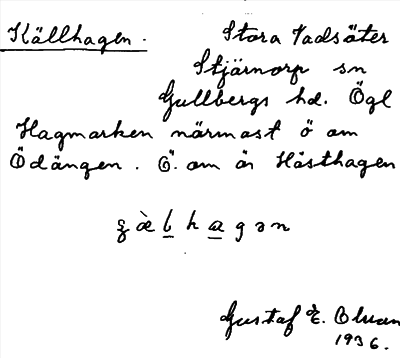 Källhagen. Stora Vadsäter
Stjärnorp sn
Gullbergs hd. Ögl
Hagmarken närmast ö om
Ödängen. Ö. om är Hästhagen
hagən
Gustaf E.
1936.